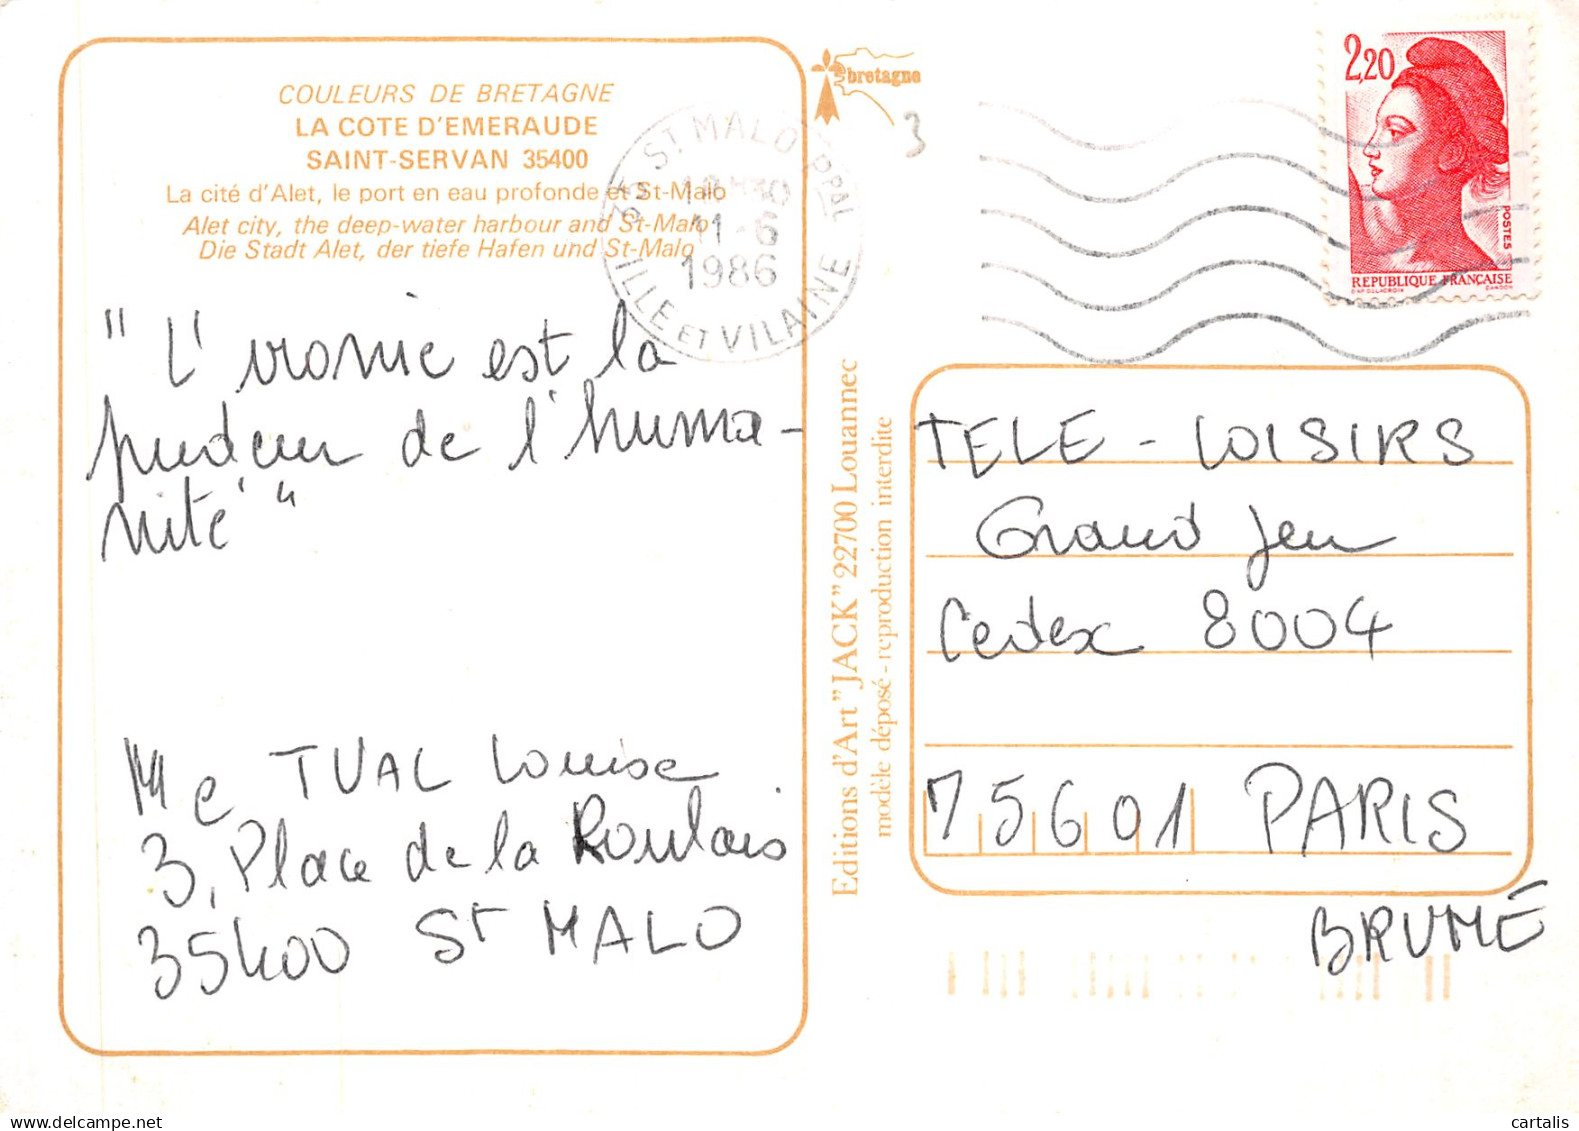 COULEURS DE BRETAGNE
LA COTE D'EMERAUDE
SAINT-SERVAN 35400
La cité d'Alet, le port en eau profonde et St-Malo
Alet city, the deep-water harbour and St-Malo
Die Stadt Alet, der tiefe Hafen und St-Malo
" L'ironie est la
pudeur de l'huma-
nité "
Me TUAL Louise
3, Place de la Roulais
35400 St MALO
bretagne
3
35 ST MALO PPAL
11-6
1986
ILLE ET VILAINE
Editions d'Art "JACK" 22700 Louannec
modèle déposé - reproduction interdite
2,20
POSTES
REPUBLIQUE FRANÇAISE
D'AP. DELACROIX GANDON
TELE - LOISIRS
Grand Jeu
Cedex 8004
75601 PARIS
BRUME
cartalis